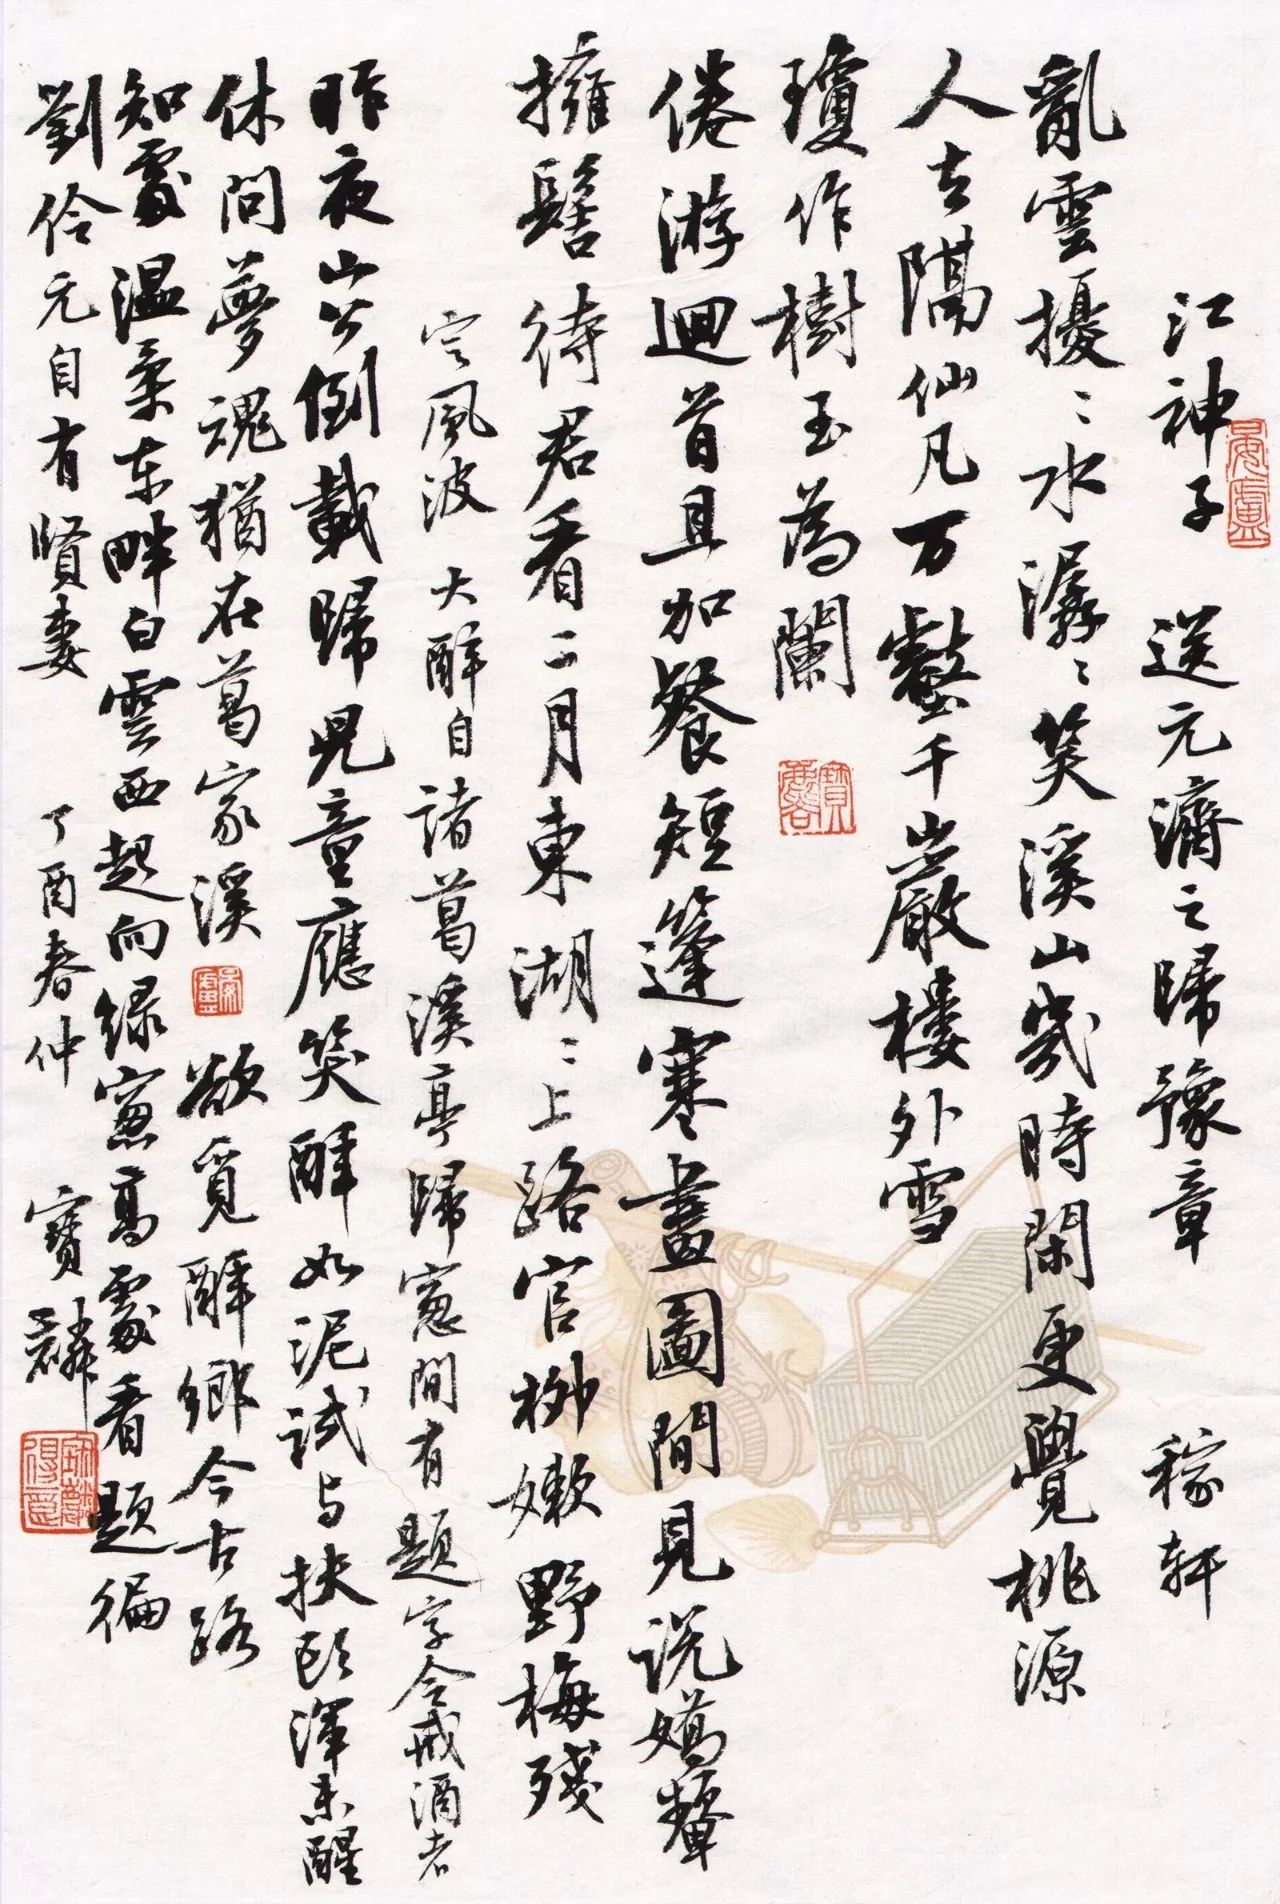 江神子 送元濟之歸豫章 稼軒
亂雲擾〻水潺〻笑溪山幾時閑更覺桃源
人去隔仙凡万壑千巖樓外雪
瓊作樹玉為闌
倦游迴首且加餐短篷寒畫圖間見说嬌顰
擁髻待君看二月東湖〻上路官桞嫩野梅殘
定風波 大醉自諸葛溪亭歸窻間有题字令戒酒者
昨夜山公倒載歸兒童應笑醉如泥试与扶頭渾未醒
休问夢魂猶在葛家溪 欲覓醉鄉今古路
知處温柔东畔白雲西起向绿窻高處看题徧
劉伶元自有賢妻 丁酉春仲 寶麟